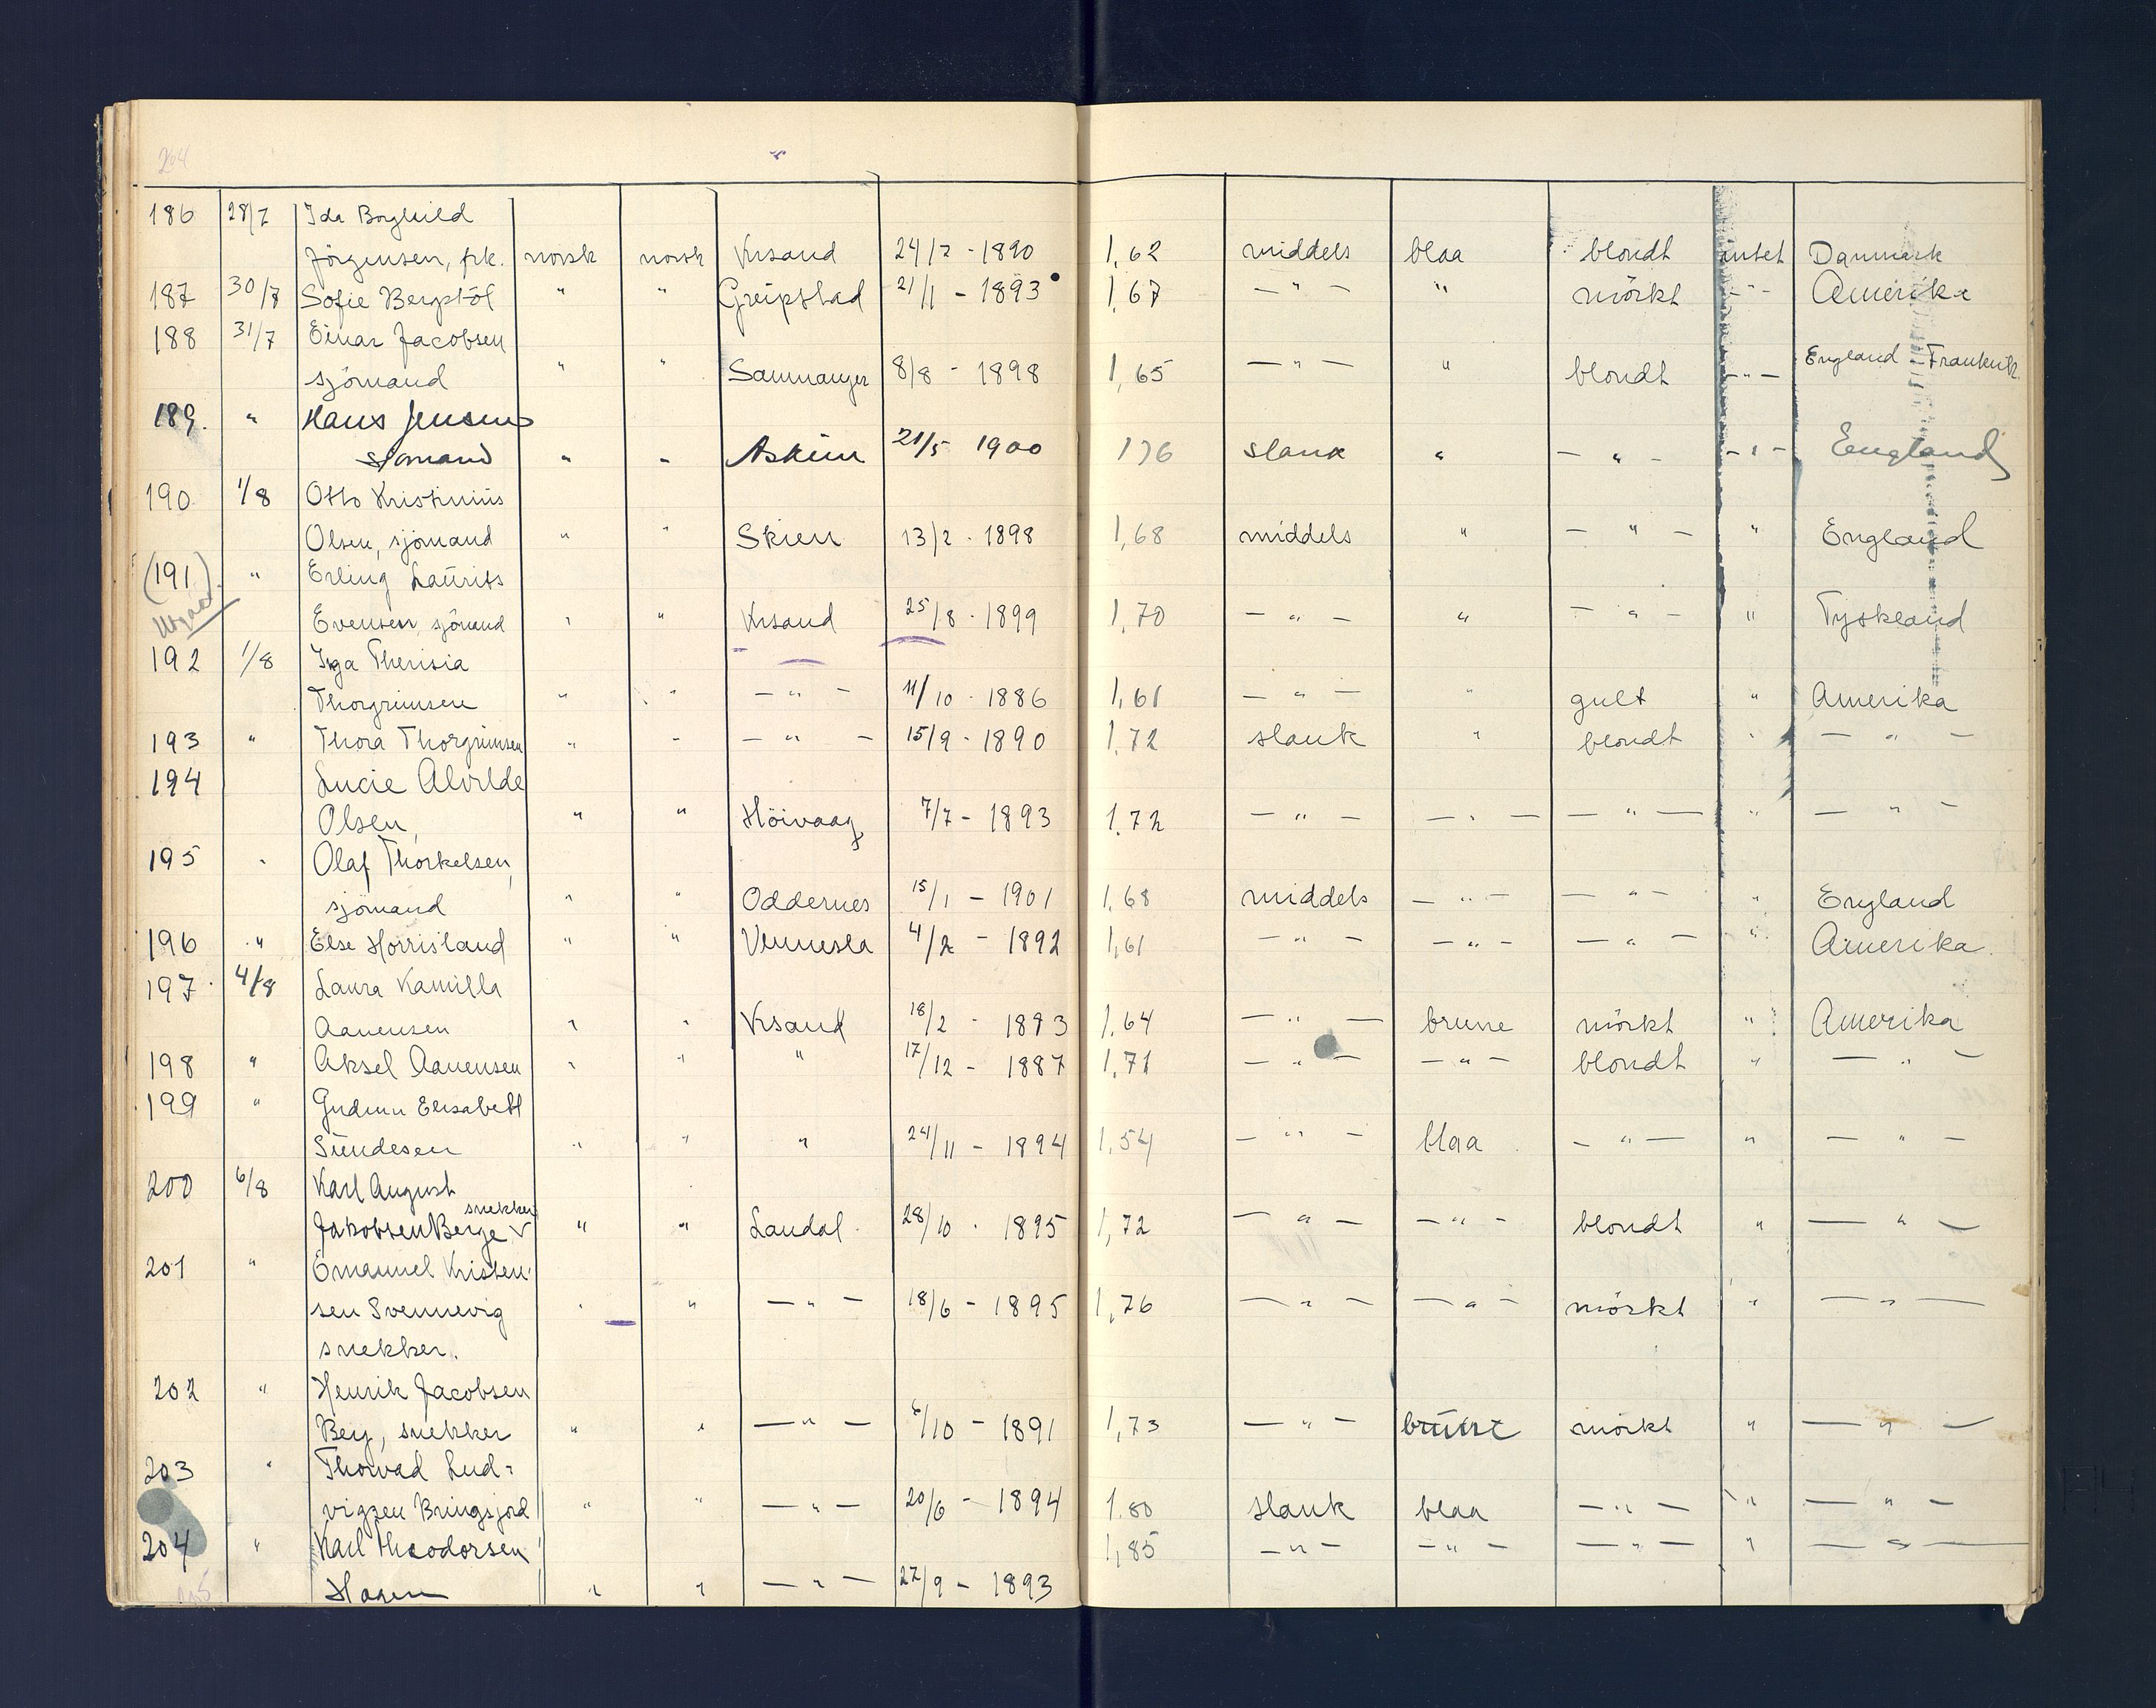 204
186 28/7 Ida Borghild
Jörgensen, frk. norsk norsk Krsand 24/2 - 1890 1,62 middels blaa blondt intet Danmark
187 30/7 Sofie Bergstöl " " Greipstad 21/1 - 1893 1,67 - " - " mörkt - " - Amerika
188 31/7 Einar Jacobsen
sjömand " " Sammanger 8/8 - 1898 1,65 - " - " blondt - " - England Frankrik
189. " Hans Jensen
sjömand " " Askim 21/5 1900 176 slank " - " - - " - England
190 1/8 Otto Kristinius
Olsen, sjömand " " Skien 13/2 - 1898 1,68 middels " - " - " England
(191) " Erling Laurits
Evensen, sjömand " " Krsand 25/8 - 1899 1,70 - " - " - " - " Tyskland
192 1/8 Inga Therisia
Thorgrimsen " " - " - 11/10 - 1886 1,61 - " - " gult " Amerika
193 " Thora Thorgrimsen " " - " - 15/9 - 1890 1,72 slank " blondt " - " -
194 Lucie Alvilde
Olsen, " " Höivaag 7/7 - 1893 1,72 - " - - " - - " - " - " -
195 " Olaf Thorkelsen,
sjömand " " Oddernes 15/1 - 1901 1,68 middels - " - - " - " England
196 " Else Horrisland " " Vennesla 4/2 - 1892 1,61 - " - - " - - " - " Amerika
197 4/8 Laura Kamilla
Aanensen " " Krsand 18/2 - 1893 1,64 - " - brune mörkt " Amerika
198 " Aksel Aanensen " " " 17/12 - 1887 1,71 - " - - " - blondt " - " -
199 " Gudrun Elisabeth
Sundesen " " " 24/11 - 1894 1,54 - " - blaa - " - " - " -
200 6/8 Karl August
snekker
Jakobsen Berge v " " Laudal 28/10 - 1895 1,72 - " - - " - blondt " - " -
201 " Emanuel Kristen-
sen Svennevig " " - " - 18/6 - 1895 1,76 - " - - " - mörkt " - " -
snekker.
202 " Henrik Jacobsen
Berg, snekker " " - " - 6/10 - 1891 1,73 - " - brune mörkt " - " -
203 " Thorvad Lud-
vigsen Bringsjord " " - " - 20/6 - 1894 1,80 slank blaa - " - " - " -
204 " Karl Theodorsen 1,85 - " - - " - - " - " - " -
205 Hagen " " - " - 27/9 - 1893